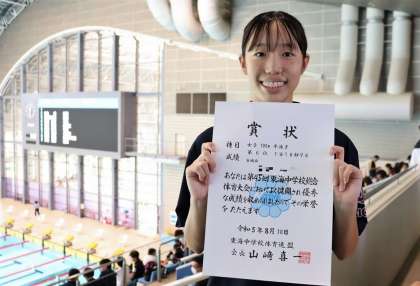 賞状
種目 女子 100m 平泳ぎ
成績
あなたは第45回東海中学校総合
体育大会において頭書のとおり優秀
な成績を収めましたのでその栄誉
をたたえます
令和5年8月10日
東海中学校体育連盟
会長 山﨑喜一